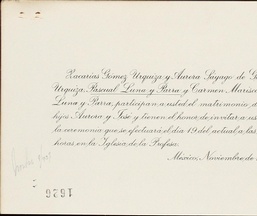 Zacarías Gómez Urquiza y Aurora Sayago de G
Urquiza, Pascual Luna y Parra y Carmen Marisca
Luna y Parra, participan a usted el matrimonio d
hijos Aurora y José y tienen el honor de invitar a us
la ceremonia que se efectuará el día 19 del actual a las
horas en la Iglesia de la Profesa.
México, Noviembre de
1926